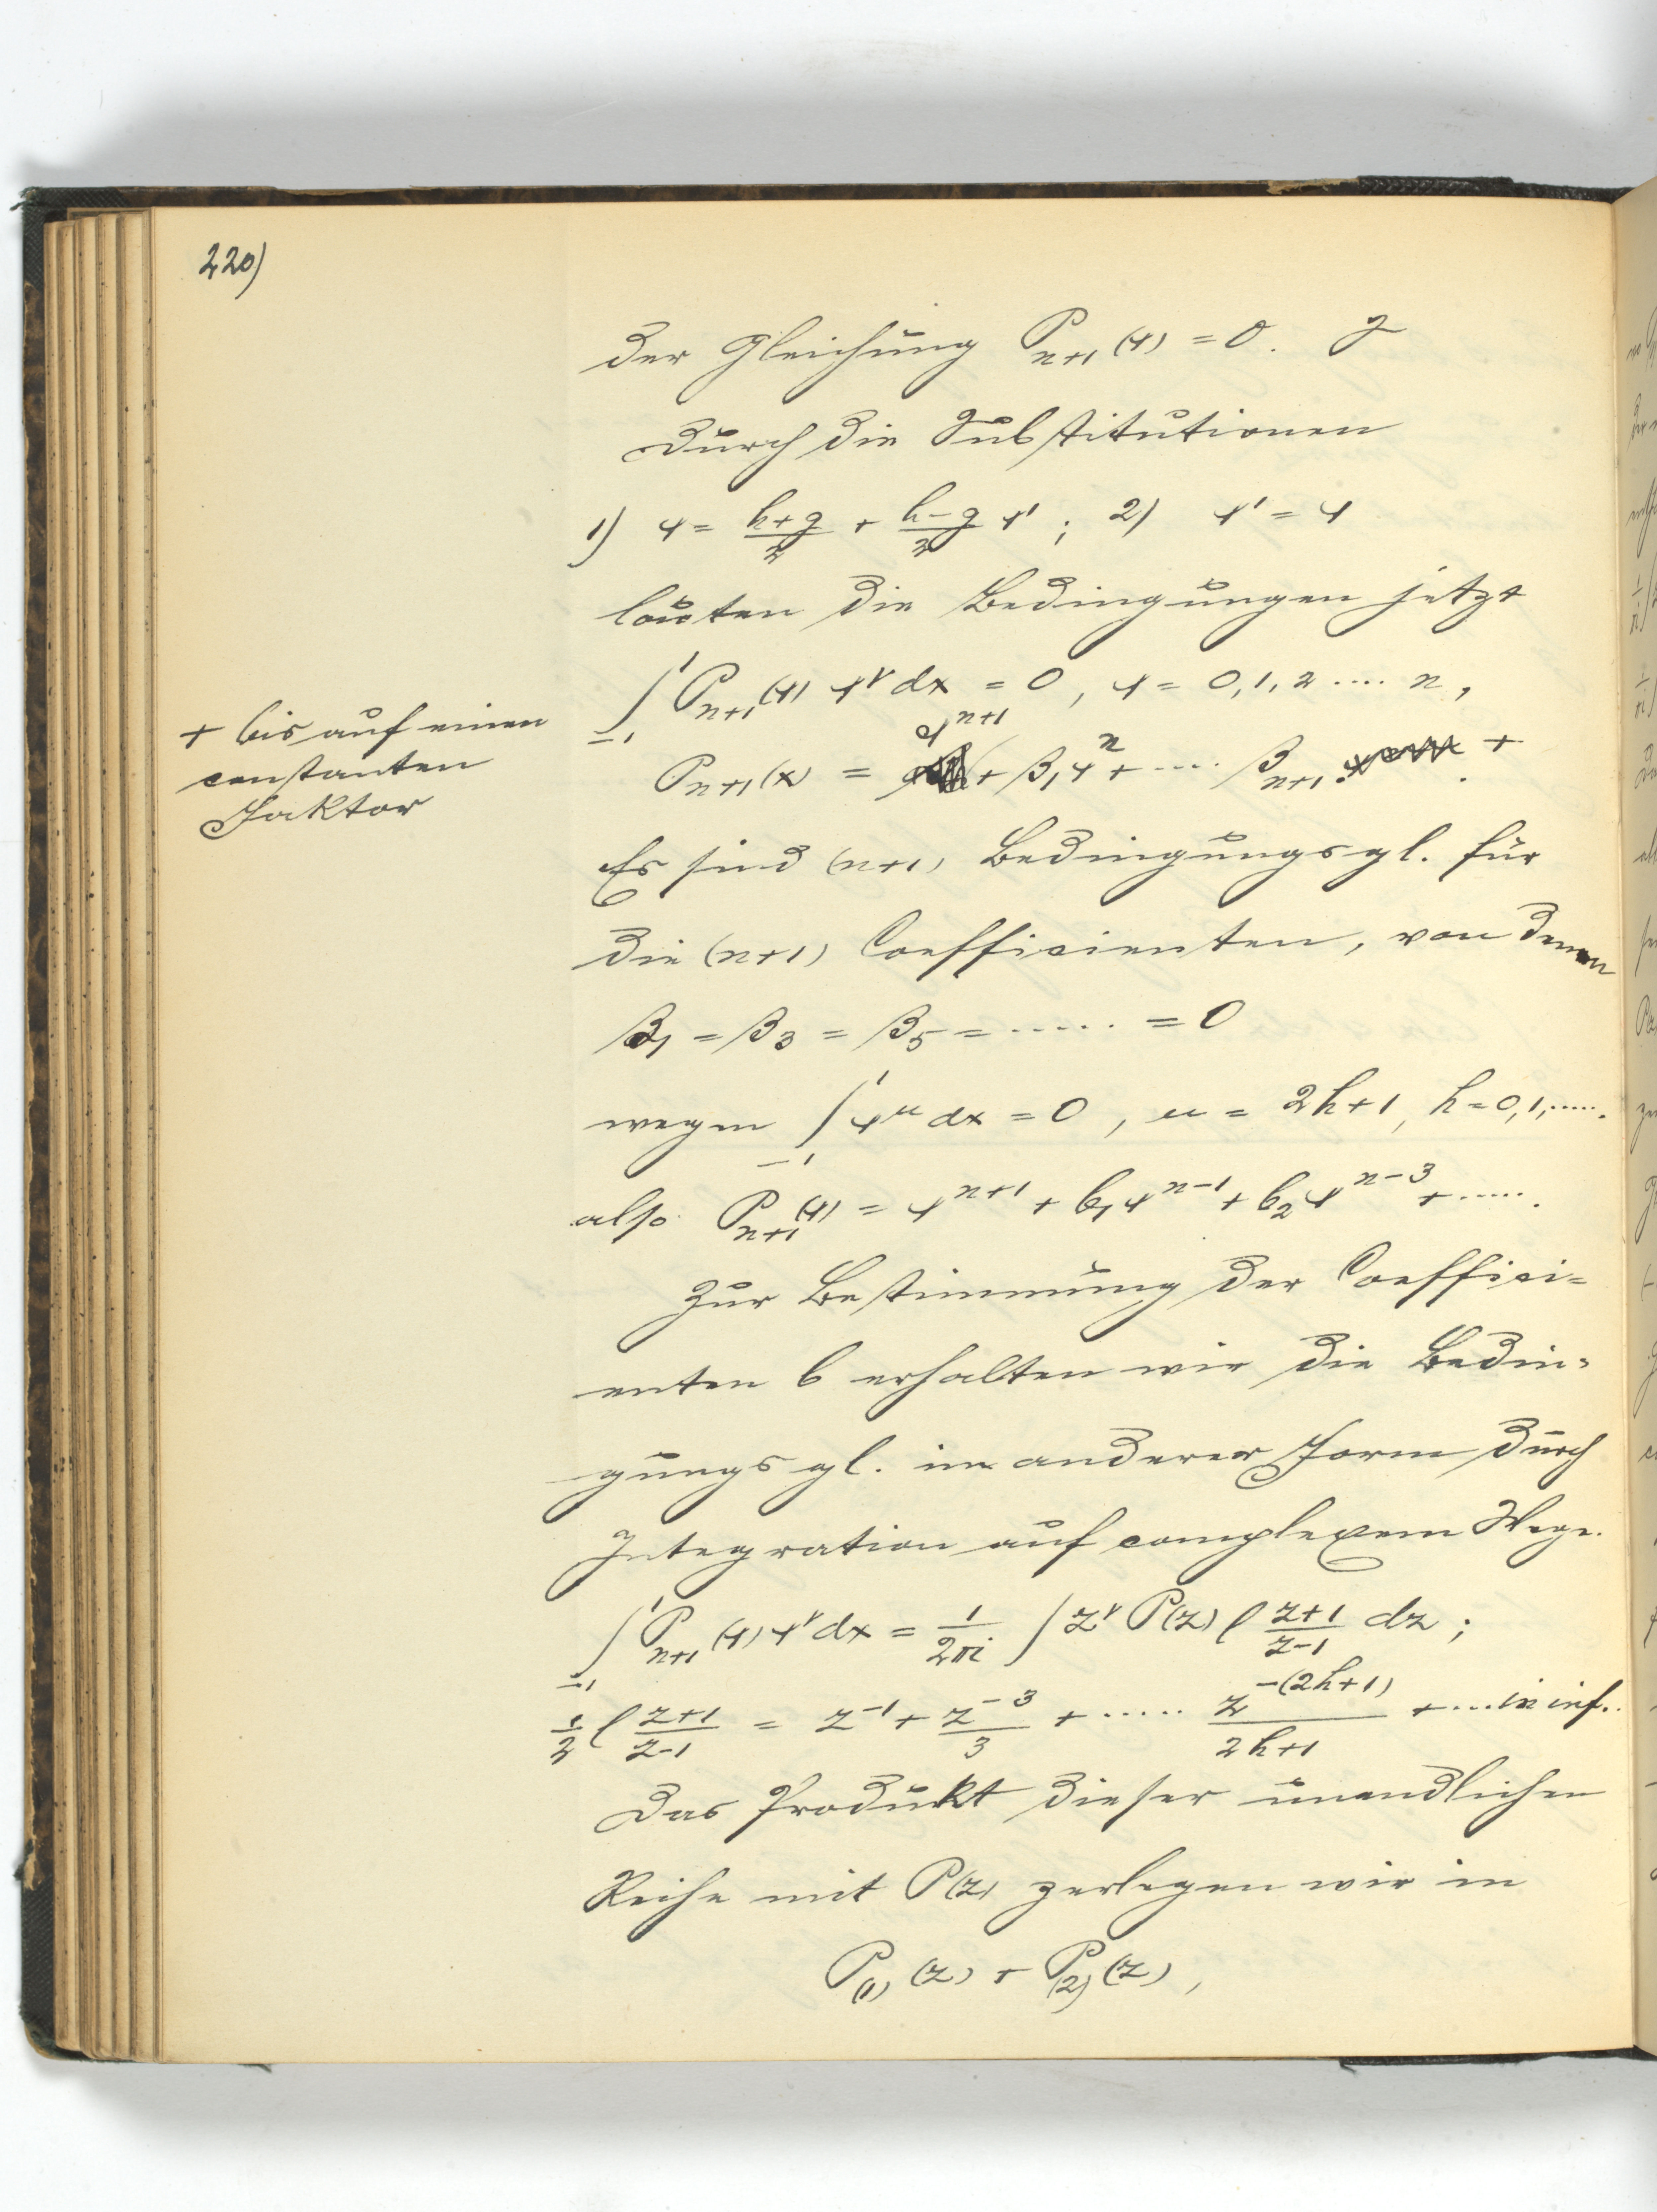 220)
der Gleichung P_{n+1}(x) = 0.
Durch die Substitutionen
1) x = \frac{h+g}{2} + \frac{h-g}{2} x' ; 2) x' = x
lauten die Bedingungen jetzt
\int_{-1}^{1} P_{n+1}(x) x^ν dx = 0, ν = 0, 1, 2 .... n,
P_{n+1}(x) = x^{n+1} + β_1 x^n + .... β_{n+1}. +
+ bis auf einen
constanten
Faktor
Es sind (n+1) Bedingungsgl. für
die (n+1) Coefficienten, von denen
β_1 = β_3 = β_5 = ..... = 0
wegen \int_{-1}^{1} x^μ dx = 0, μ = 2h+1, h = 0, 1, .....
also P_{n+1}(x) = x^{n+1} + b_1 x^{n-1} + b_2 x^{n-3} + .....
Zur Bestimmung der Coeffici=
enten b erhalten wir die Bedin=
gungsgl. in anderer Form durch
Integration auf complexem Wege.
\int_{-1}^{1} P_{n+1}(x) x^ν dx = \frac{1}{2πi} \int z^ν P(z) l \frac{z+1}{z-1} dz ;
\frac{1}{2} l \frac{z+1}{z-1} = z^{-1} + \frac{z^{-3}}{3} + ..... \frac{z^{-(2h+1)}}{2h+1} + ... in inf.
Das Produkt dieser unendlichen
Reihe mit P(z) zerlegen wir in
P_{(1)}(z) + P_{(2)}(z),